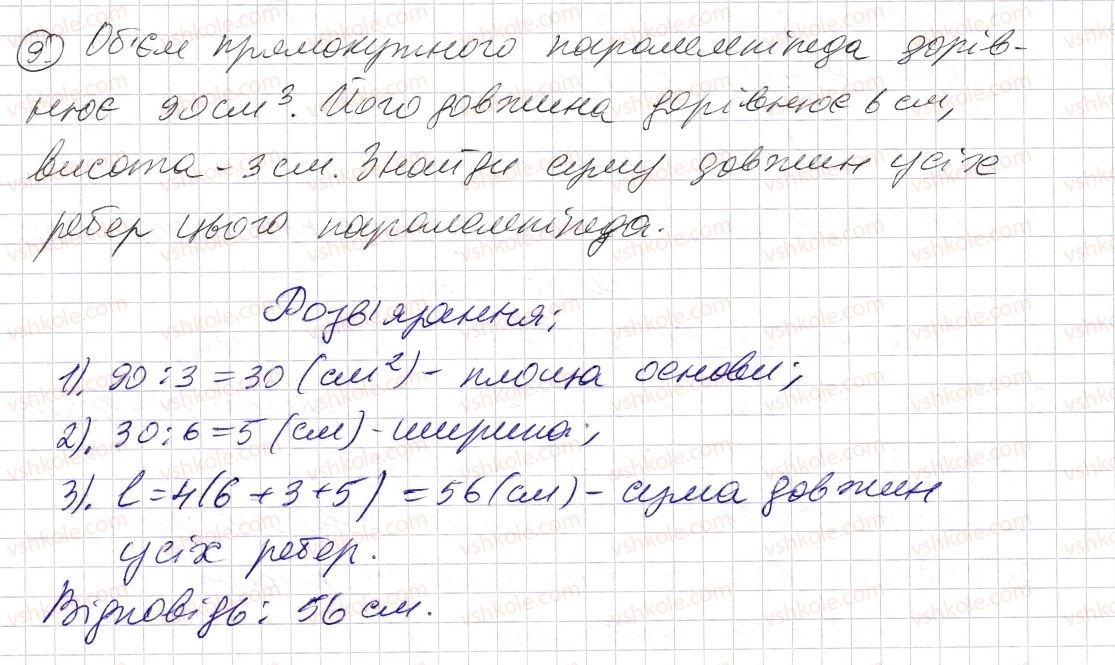 9). Об'єм прямокутного паралелепіпеда дорів-
нює 90 см³. Його довжина дорівнює 6 см,
висота - 3 см. Знайди суму довжин усіх
ребер цього паралелепіпеда.
Розв'язання:
1). 90 : 3 = 30 (см²) - площа основи;
2). 30 : 6 = 5 (см) - ширина;
3). l = 4(6 + 3 + 5) = 56 (см) - сума довжин
усіх ребер.
Відповідь: 56 см.